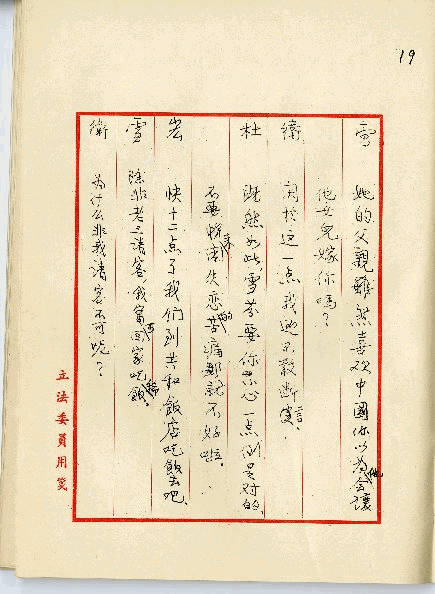 19
雪 她的父親雖然喜欢中國你以为他会讓
他女兒嫁你嗎？
衛 関於這一点我也不敢断言。
杜 既然如此，雪芬要你当心一点倒是对的，
不要 失恋的苦痛那就不好啦。
岩 快十二点了我们到共和飯店吃飯去吧、
雪 除非老三請客，我寧可回家吃飯。
衛 为什么非我請客不可呢？
立法委員用箋